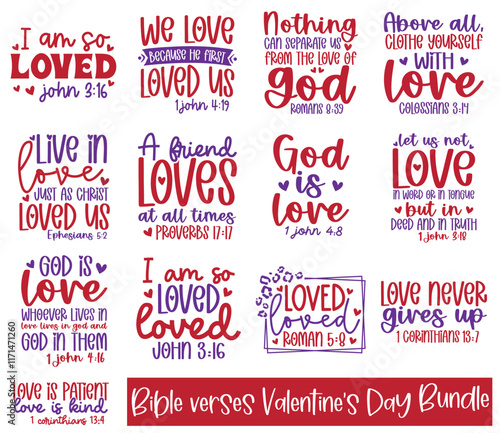 I am so
LOVED
john 3:16
WE LOVE
BECAUSE HE FIRST
LOVED US
1 john 4:19
Nothing
CAN SEPARATE US
FROM THE LOVE OF
god
ROMANS 8:39
Above all,
CLOTHE YOURSELF
WITH
love
COLOSSIANS 3:14
LIVE IN
love
JUST AS CHRIST
LOVED US
Ephesians 5:2
A friend
LOVES
at all times
PROVERBS 17:17
God
is
love
1 john 4:8
let us not
LOVE
IN WORD OR IN TONGUE
but in
DEED AND IN TRUTH
1 john 3:18
GOD IS
love
WHOEVER LIVES IN
love lives in god and
GOD IN THEM
1 john 4:16
I am so
LOVED
loved
JOHN 3:16
LOVED
loved
ROMAN 5:8
LOVE NEVER
gives up
1 CORINTHIANS 13:7
LOVE IS PATIENT
love is kind
1 corinthians 13:4
Bible verses Valentine's Day Bundle
Adobe Stock | #1171471260